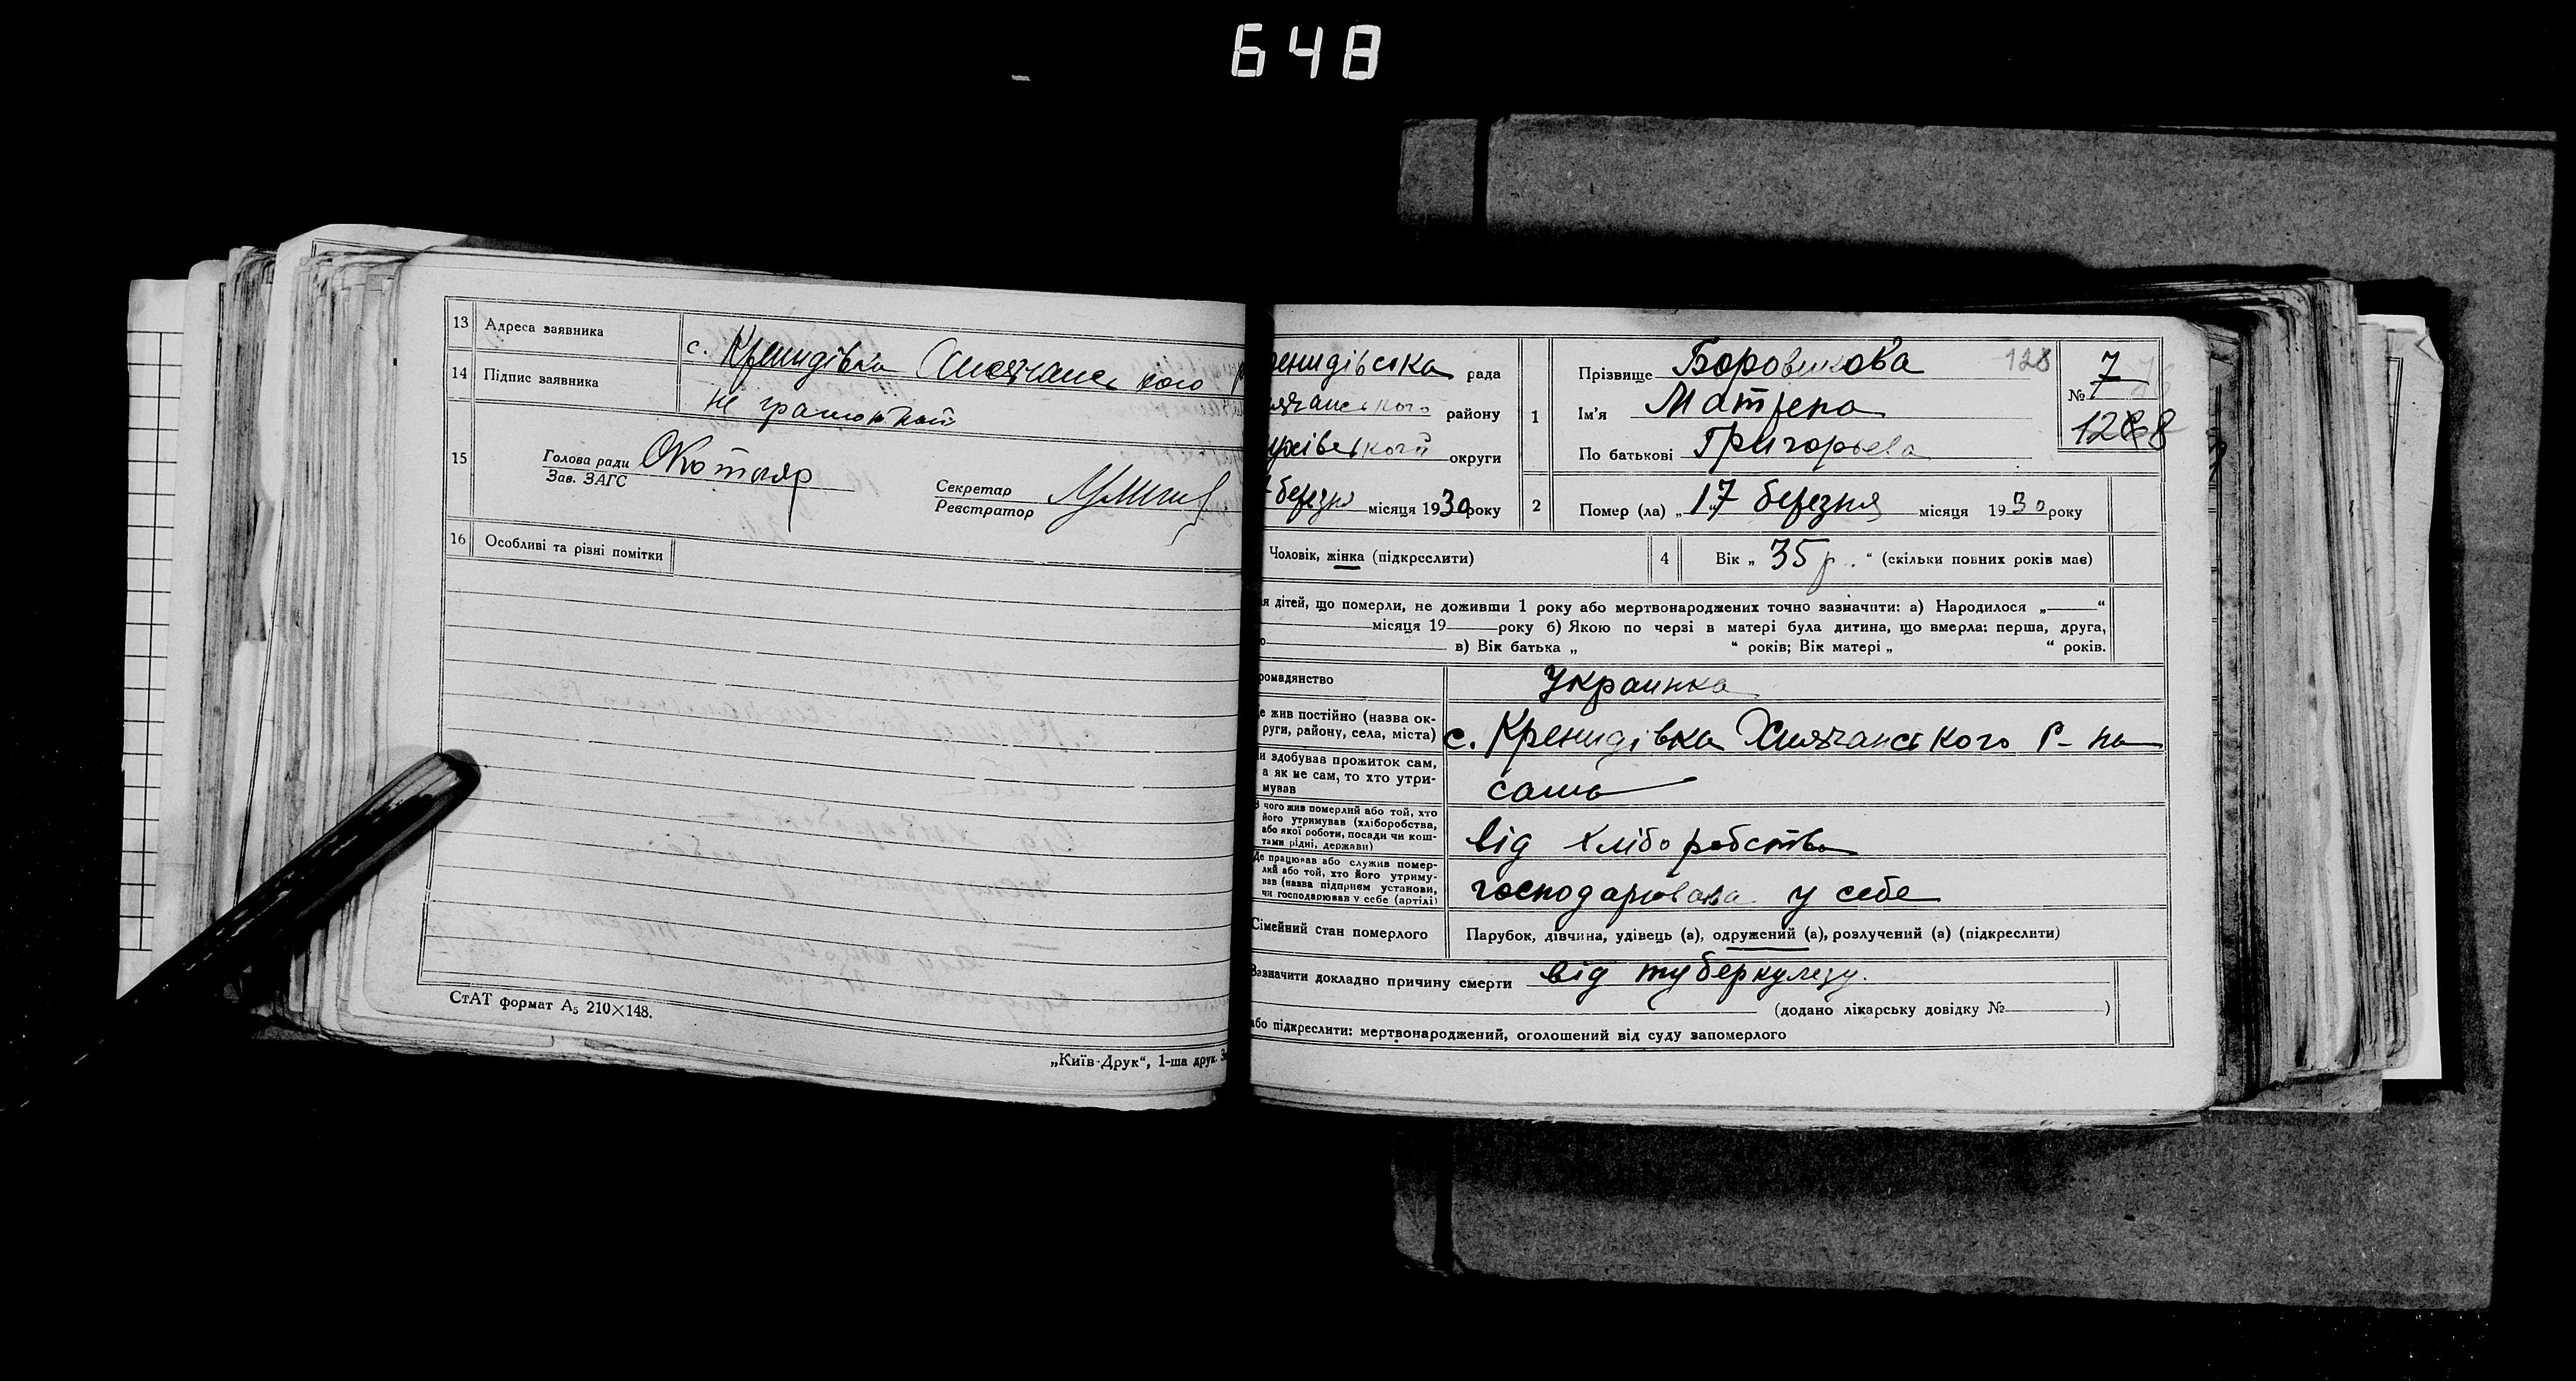 648
13 Адреса заявника с. Кренидівка Хильчанського р
14 Підпис заявника не грамотный
15 Голова ради Зав. ЗАГС
Секретар Реєстратор
16 Особливі та різні помітки
СтАТ формат А₅ 210×148.
„Київ-Друк“, 1-ша друк. З
ренидівська рада
льчанського району
округи
березня місяця 1930 року
1 Прізвище Боровикова 128
Ім'я Матрена
По батькові Григорьева
№ 7
128
2 Помер (ла) „17 березня місяця 1930 року
Чоловік, жінка (підкреслити)
4 Вік „ 35 р. “ (скільки повних років має)
я дітей, що померли, не доживши 1 року або мертвонароджених точно зазначити: а) Народилося „ “
місяця 19 року б) Якою по черзі в матері була дитина, що вмерла: перша, друга,
в) Вік батька „ “ років; Вік матері „ “ років.
ромадянство Украинка
е жив постійно (назва ок-
руги, району, села, міста) с. Кренидівка Хильчанського р-на
и здобував прожиток сам,
а як не сам, то хто утри-
мував сама
З чого жив померлий або той, хто
його утримував (хліборобства,
або якої роботи, посади чи кош-
тами рідні, держави) від хліборобства
Де працював або служив помер-
лий або той, хто його утриму-
вав (назва підприєм установи,
чи господарював у себе (артілі) господарювала у себе
Сімейний стан померлого Парубок, дівчина, удівець (а), одружений (а), розлучений (а) (підкреслити)
Зазначити докладно причину смерти від туберкулезу.
(додано лікарську довідку № )
або підкреслити: мертвонароджений, оголошений від суду запомерлого